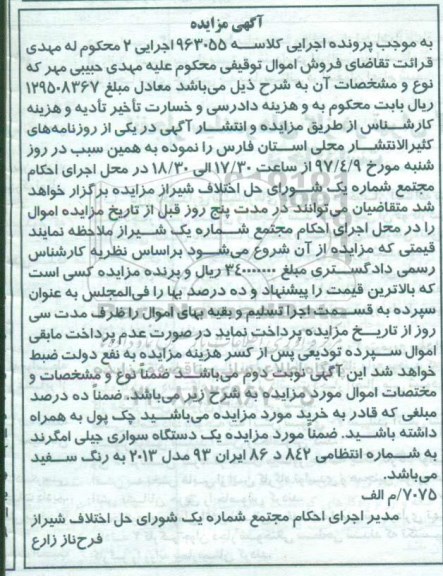 آگهی مزایده
به موجب پرونده اجرایی کلاسه ۹۶۳۰۵۵ اجرایی ۲ محکوم له مهدی
قرائت تقاضای فروش اموال توقیفی محکوم علیه مهدی حبیبی مهر که
نوع و مشخصات آن به شرح ذیل می‌باشد معادل مبلغ ۱۲۹۵۰۸۳۶۷
ریال بابت محکوم به و هزینه دادرسی و خسارت تأخیر تأدیه و هزینه
کارشناس از طریق مزایده و انتشار آگهی در یکی از روزنامه‌های
کثیرالانتشار محلی استان فارس را نموده به همین سبب در روز
شنبه مورخ ۹۷/۴/۹ از ساعت ۱۷/۳۰ الی ۱۸/۳۰ در محل اجرای احکام
مجتمع شماره یک شورای حل اختلاف شیراز مزایده برگزار خواهد
شد متقاضیان می‌توانند در مدت پنج روز قبل از تاریخ مزایده اموال
را در محل اجرای احکام مجتمع شماره یک شیراز ملاحظه نمایند
قیمتی که مزایده از آن شروع می‌شود براساس نظریه کارشناس
رسمی دادگستری مبلغ ۳۴۰۰۰۰۰۰۰ ریال و برنده مزایده کسی است
که بالاترین قیمت را پیشنهاد و ده درصد بها را فی‌المجلس به عنوان
سپرده به قسمت اجرا تسلیم و بقیه بهای اموال را ظرف مدت سی
روز از تاریخ مزایده پرداخت نماید در صورت عدم پرداخت مابقی
اموال سپرده تودیعی پس از کسر هزینه مزایده به نفع دولت ضبط
خواهد شد این آگهی نوبت دوم می‌باشد ضمناً نوع و مشخصات و
مختصات اموال مورد مزایده به شرح زیر می‌باشد. ضمناً ده درصد
مبلغی که قادر به خرید مورد مزایده می‌باشید چک پول به همراه
داشته باشید. ضمناً مورد مزایده یک دستگاه سواری جیلی امگرند
به شماره انتظامی ۸۴۲ د ۸۶ ایران ۹۳ مدل ۲۰۱۳ به رنگ سفید
می‌باشد.
۷۰۷۵/م الف
مدیر اجرای احکام مجتمع شماره یک شورای حل اختلاف شیراز
فرح‌ناز زارع